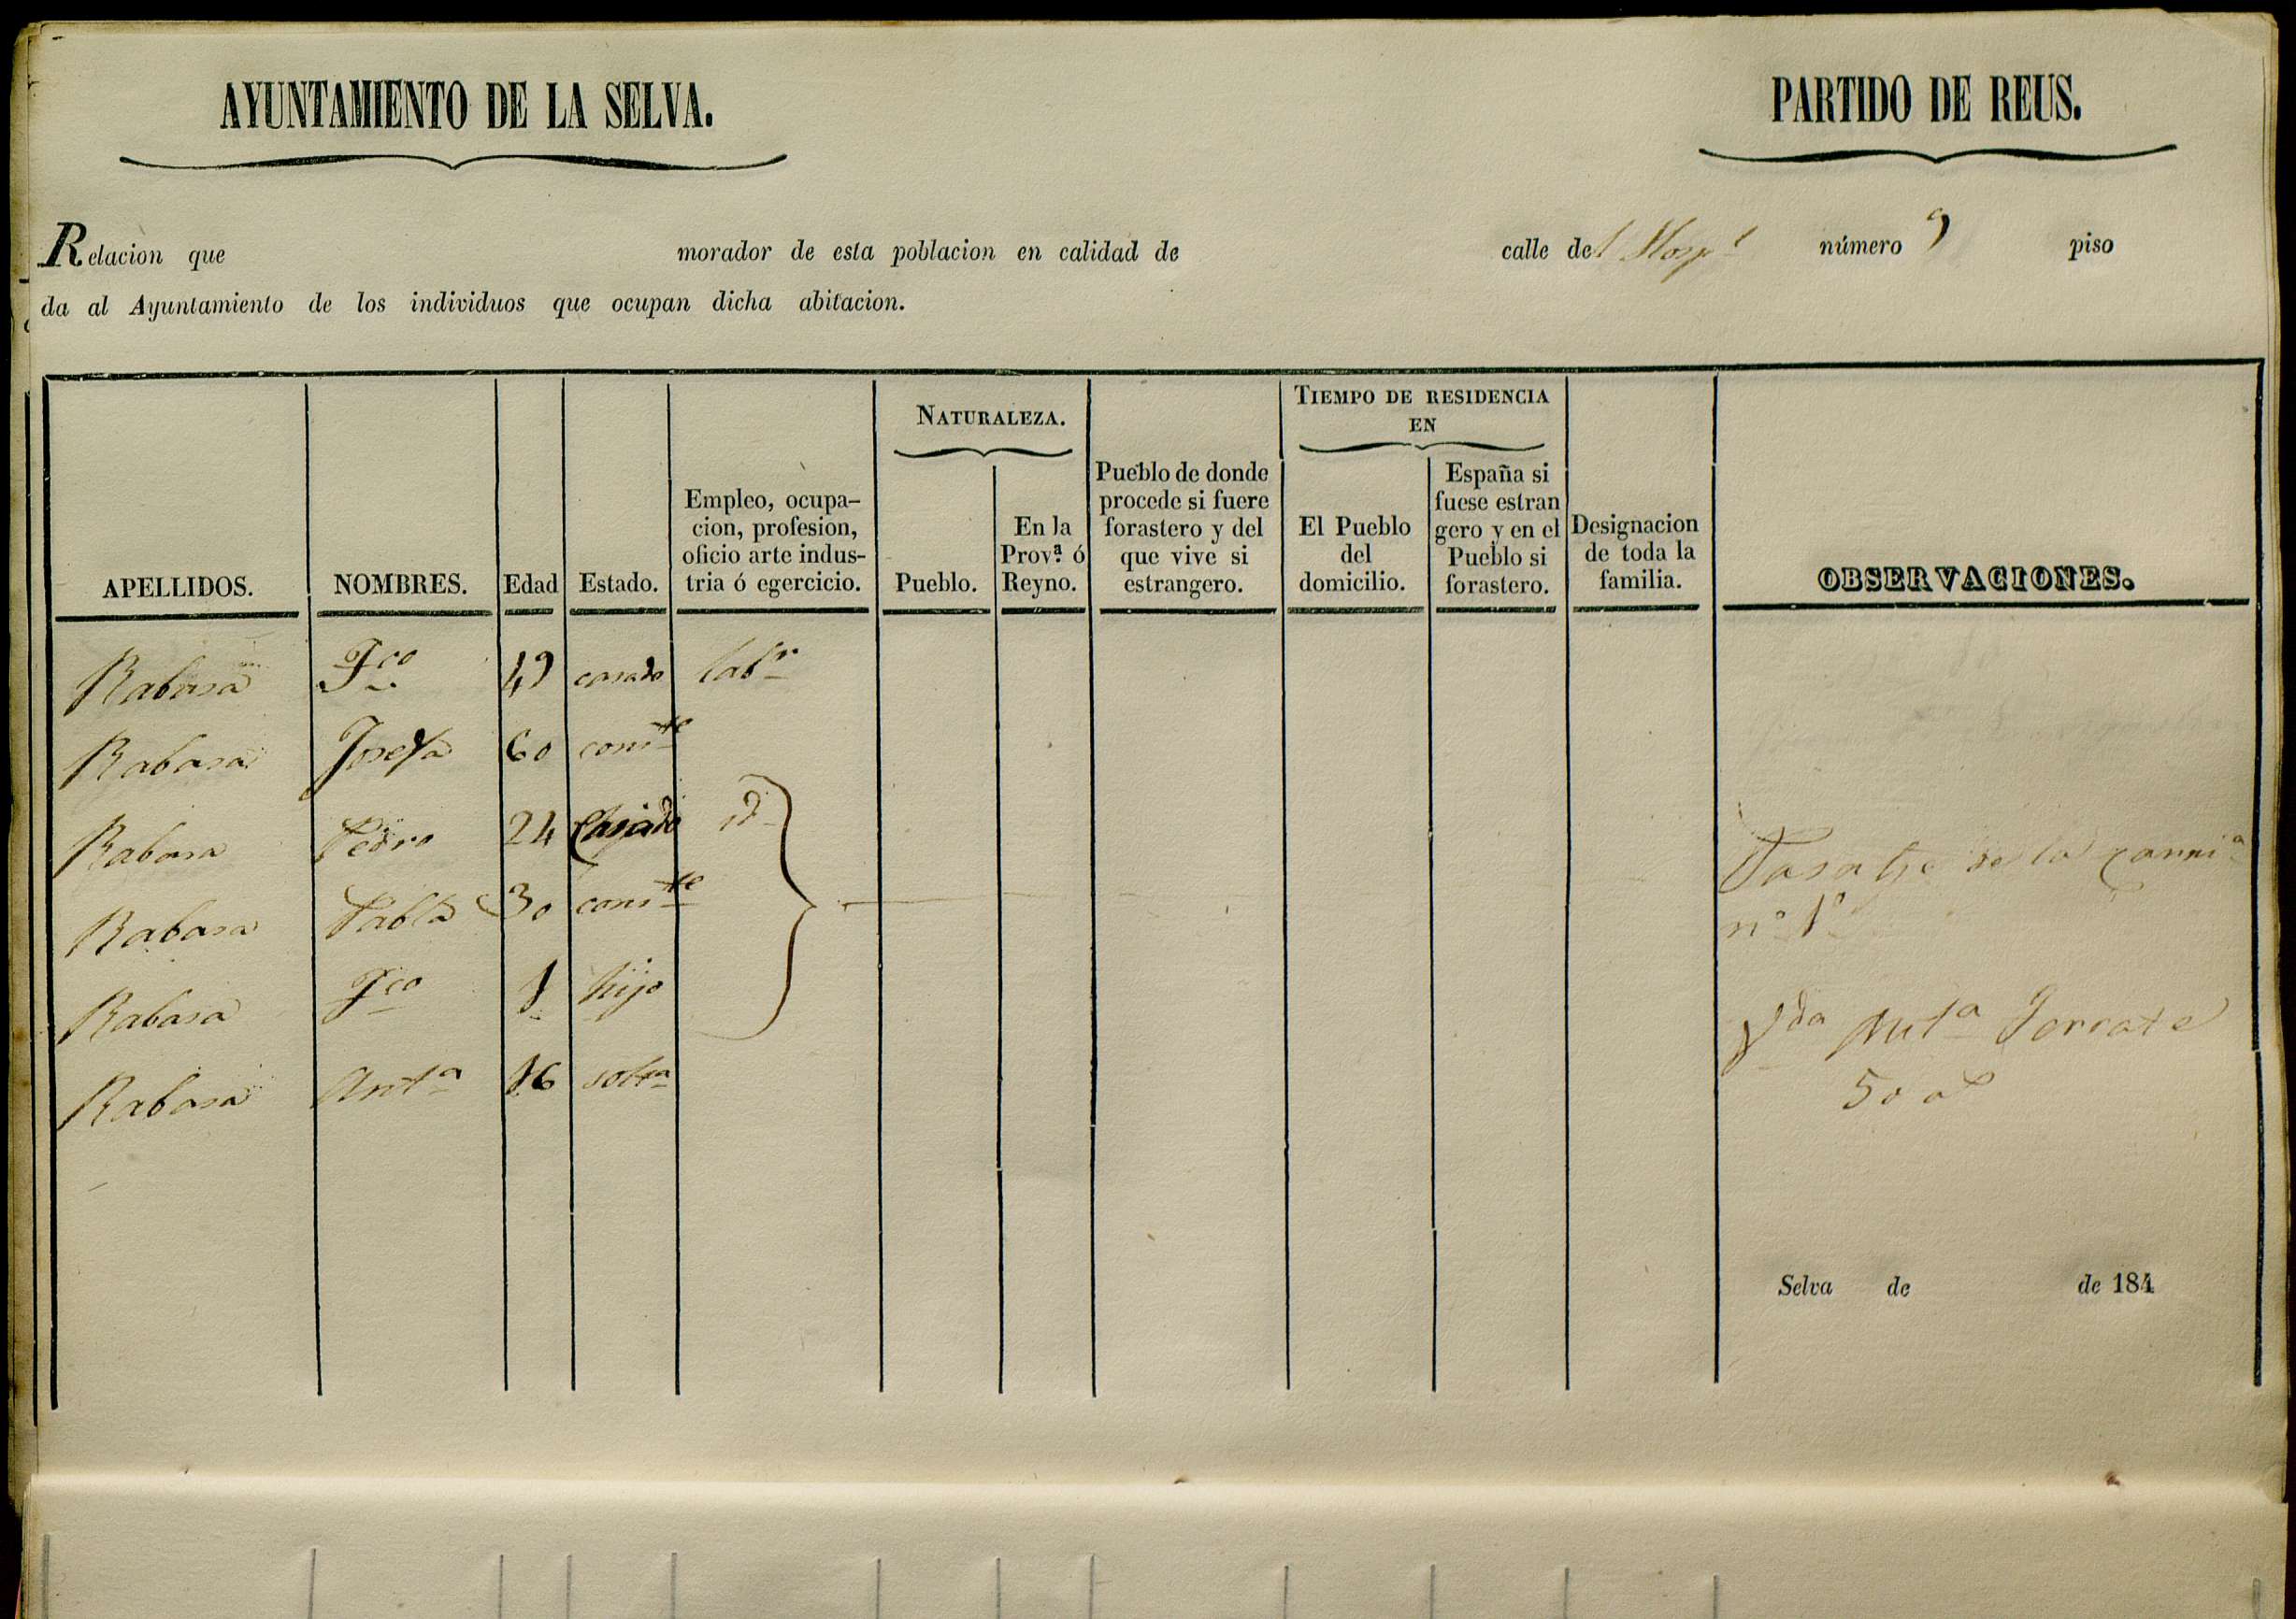 AYUNTAMIENTO DE LA SELVA.
PARTIDO DE REUS.
Relacion que morador de esta poblacion en calidad de calle del Hosp.l número 9 piso
da al Ayuntamiento de los individuos que ocupan dicha abitacion.
APELLIDOS.
NOMBRES.
Edad
Estado.
Empleo, ocupa-
cion, profesion,
oficio arte indus-
tria ó egercicio.
NATURALEZA.
Pueblo.
En la
Prov.ª ó
Reyno.
Pueblo de donde
procede si fuere
forastero y del
que vive si
estrangero.
TIEMPO DE RESIDENCIA
EN
El Pueblo
del
domicilio.
España si
fuese estran
gero y en el
Pueblo si
forastero.
Designacion
de toda la
familia.
OBSERVACIONES.
Rabasa Fco 49 casado labr
Rabasa Josefa 60 conste
Rabasa Pedro 24 Casado id
Rabasa Pabla 30 conste
Rabasa Fco 1 hijo
Rabasa Anta 16 solta
de la
nº 1º
Vda Anta
50 as
Selva de de 184